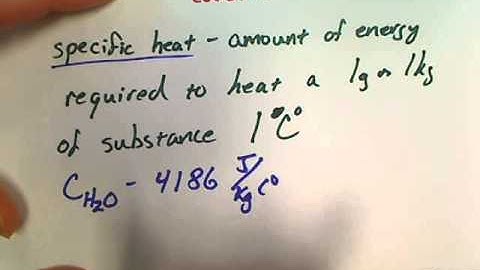 specific heat - amount of energy
required to heat a 1g or 1kg
of substance 1°C°
C_H₂O - 4186 J/kg C°